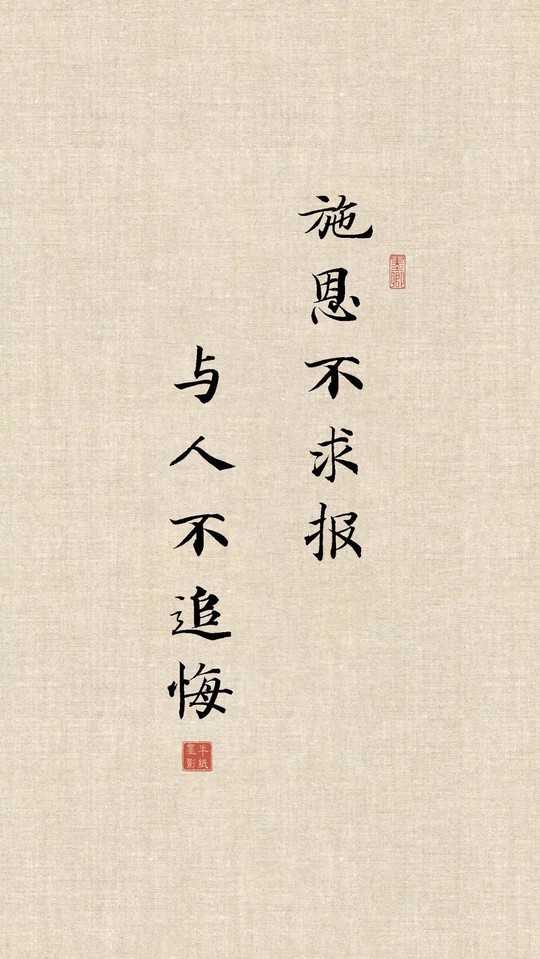 施恩不求报
与人不追悔
半紙
墨影